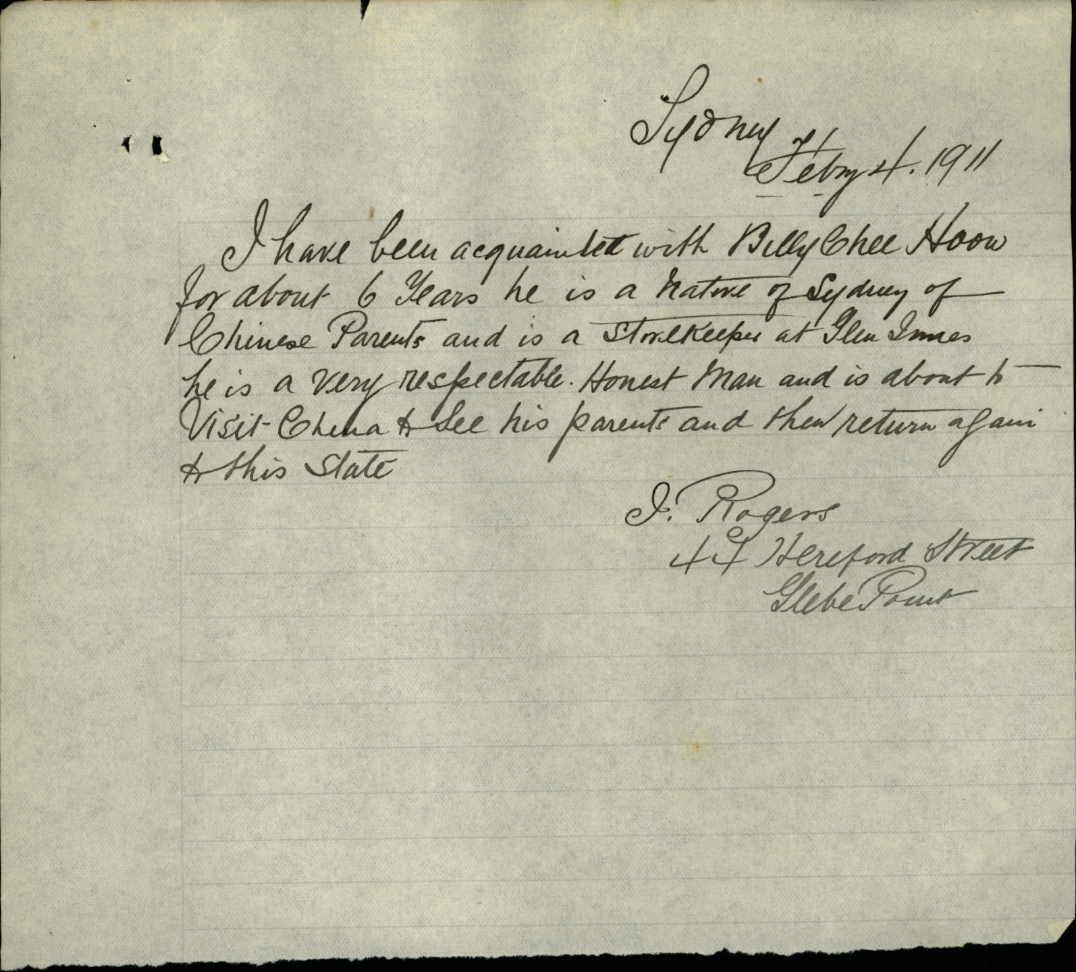 Sydney
Feby 4. 1911
I have been acquainted with Billy Chee Hoow
for about 6 Years he is a Native of Sydney of
Chinese Parents and is a Storekeeper at Glen Innes
he is a very respectable. Honest Man and is about to
Visit China to See his parents and then return again
to this State
J. Rogers
44 Hereford Street
Glebe Point